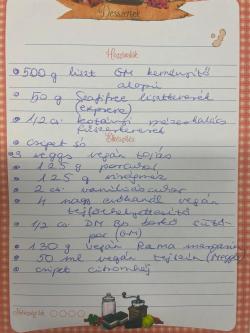 Desszertek
Hozzávalók
500 g liszt GM keményítő
alapú
50 g Szafi free lisztkeverék
1/2 cs. kotányi mézeskalács
fűszerkeverék
csipet só
Elkészítés
3 vegán tojás
125 g porcukor
125 g
2 cs. vaníliás cukor
4 nagy evőkanál vegán
tejfölhelyettesítő
1/2 cs. DM Bio sütő-
por (GM)
130 g vegán Rama margarin
50 ml vegán tejszín
csipet citromhéj